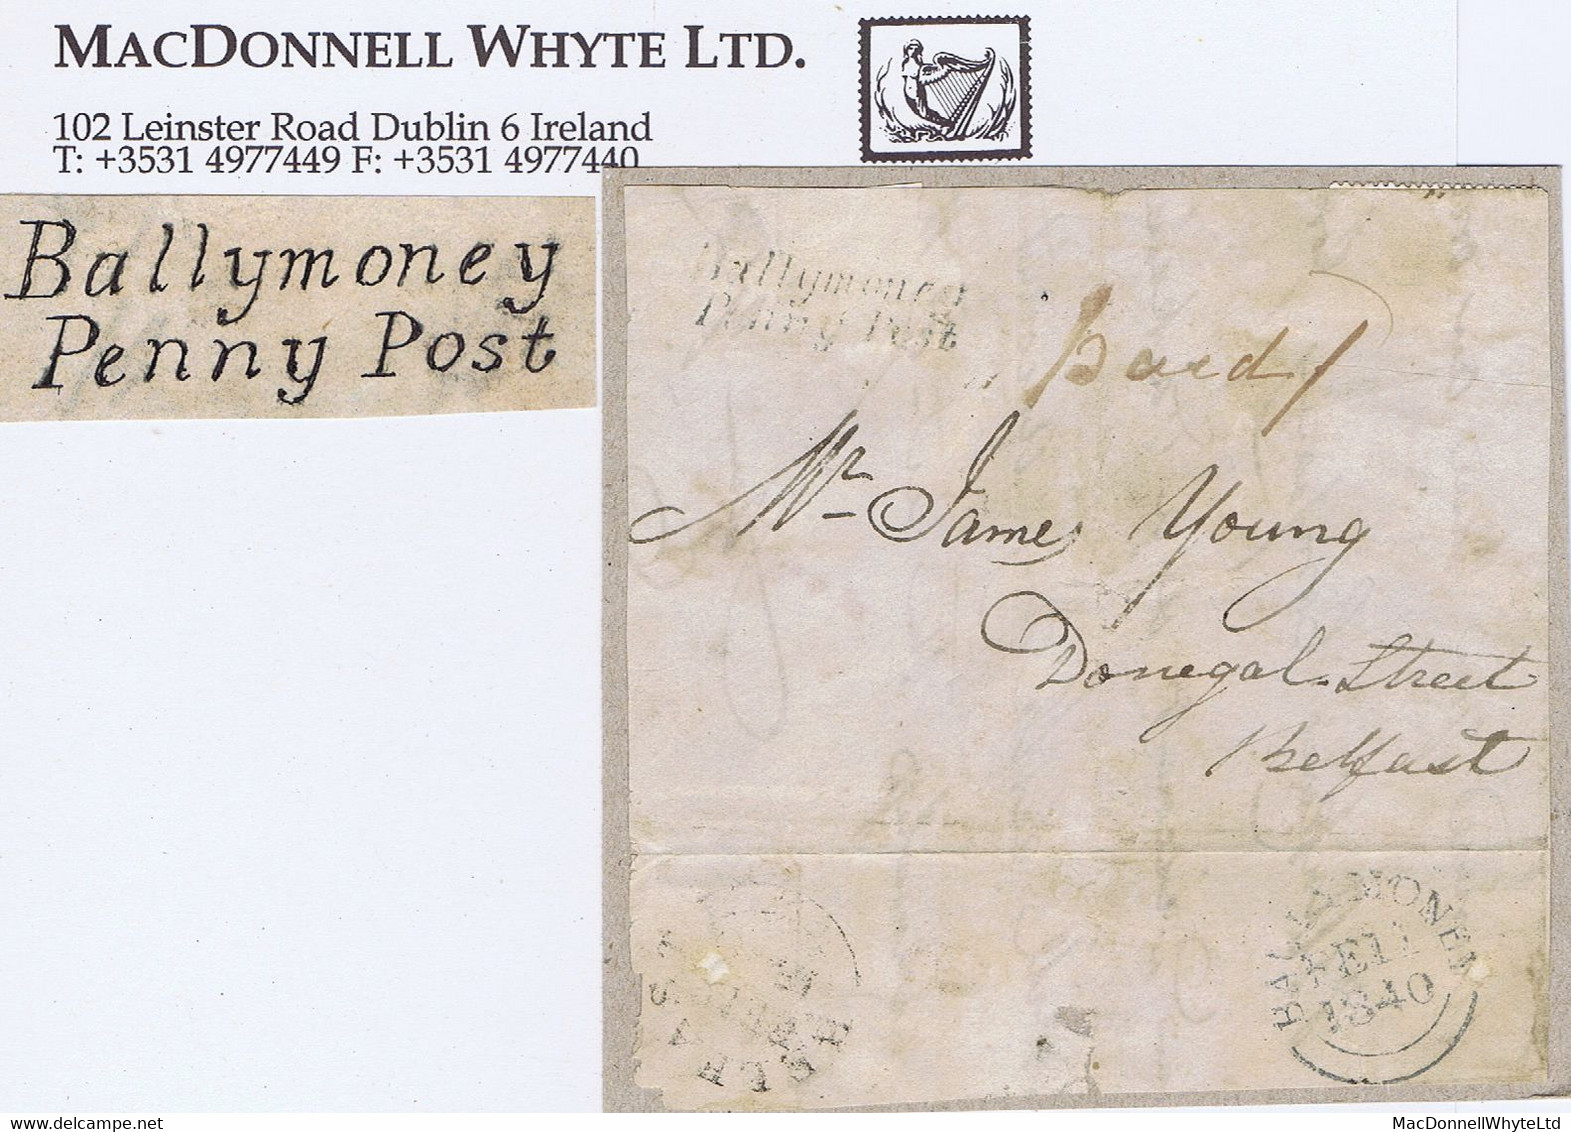 MACDONNELL WHYTE LTD.
102 Leinster Road Dublin 6 Ireland
T: +3531 4977449 F: +3531 4977440
Ballymoney
Penny Post
Ballymoney
Penny Post
paid 1
Mr James Young
Donegal Street
Belfast
BELFAST
BALLYMONEY
FE 11
1840
MacDonnellWhyteLtd